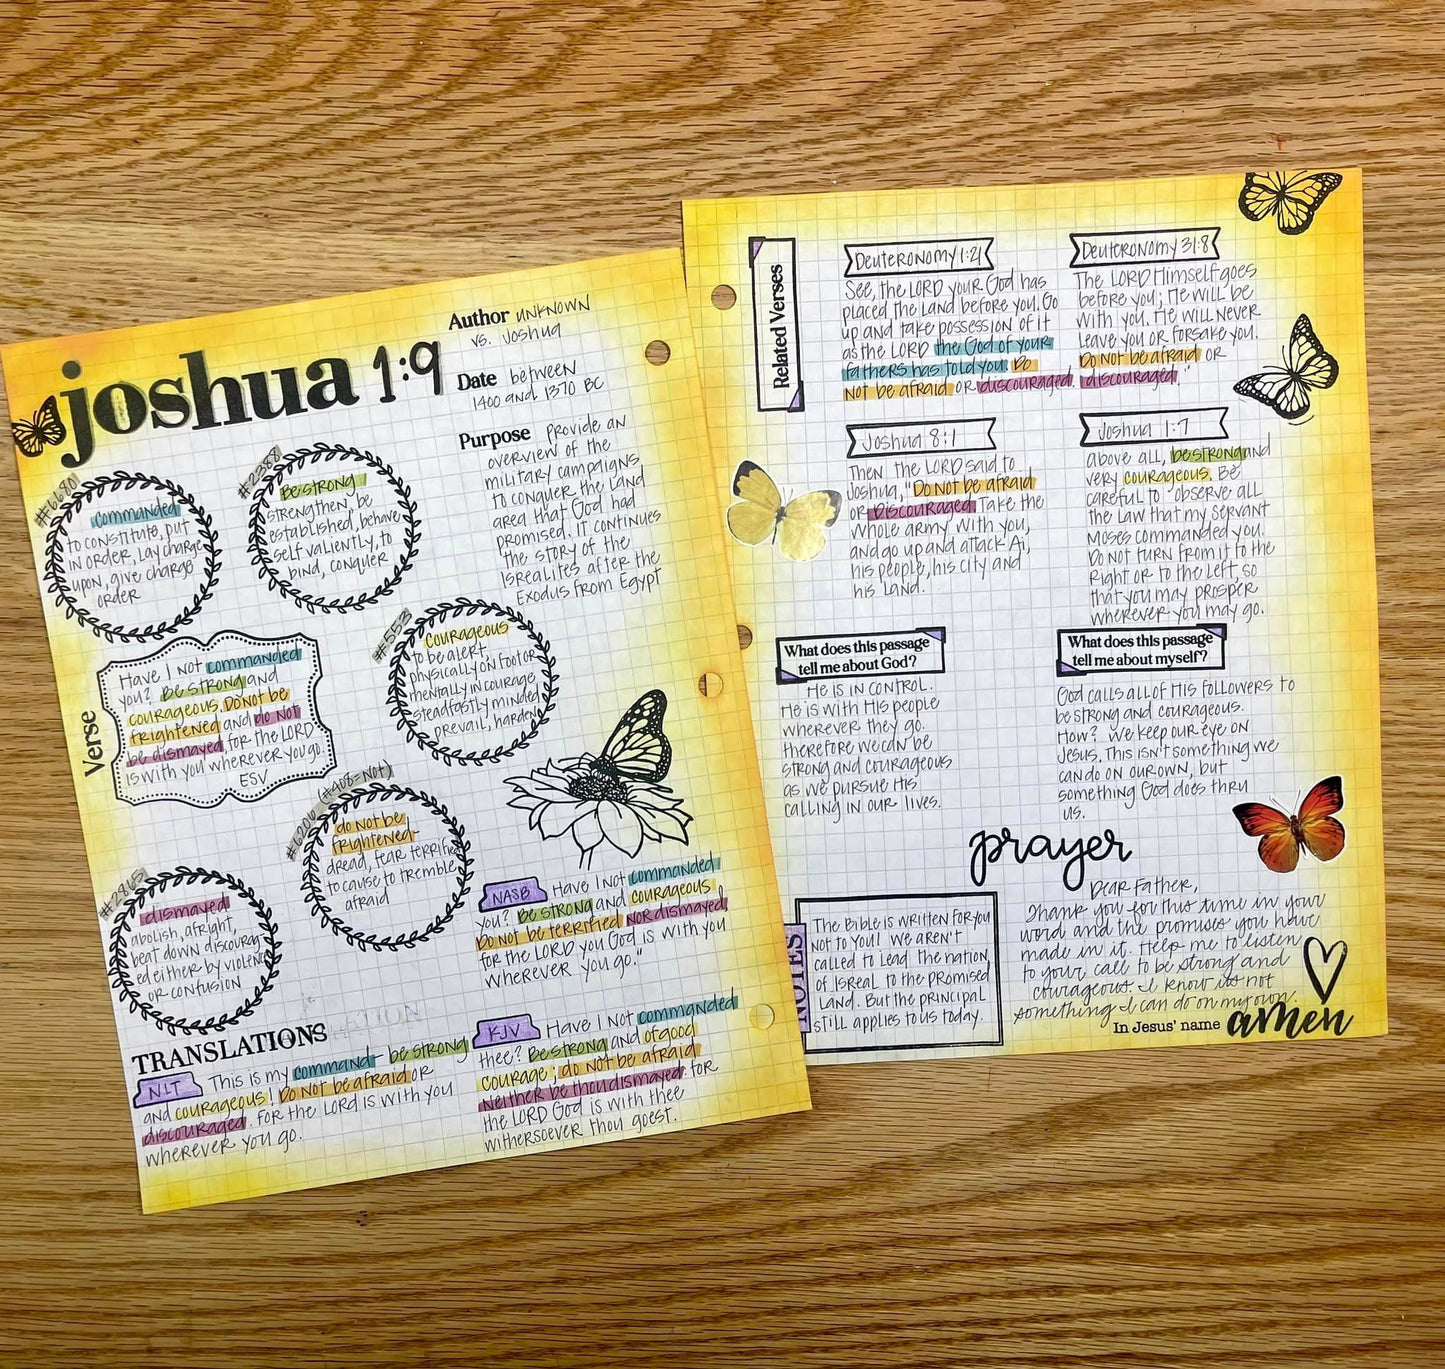 joshua 1:9
Author unknown
vs. Joshua
Date between
1400 and 1370 BC
Purpose Provide an
overview of the
military campaigns
to conquer the land
area that God had
promised. It continues
the story of the
Isrealites after the
Exodus from Egypt
#6680
commanded
to constitute, put
in order, lay charge
upon, give charge
order
#2388
Be strong
strengthen, be
established, behave
self valiently, to
bind, conquer
#553
courageous
to be alert,
physically on foot or
mentally in courage
steadfastly minded
prevail, harden
Verse
Have I not commanded
you? Be strong and
courageous. Do not be
frightened and do not
be dismayed, for the LORD
is with you wherever you go.
ESV
#6206 (#408=not)
do not be
frightened-
dread, fear terrified
to cause to tremble
afraid
#2865
dismayed
abolish, afright,
beat down discourag-
ed either by violence
or confusion
TRANSLATIONS
NLT This is my command - be strong
and courageous! Do not be afraid or
discouraged. For the Lord is with you
wherever you go.
NASB Have I not commanded
you? Be strong and courageous
Do not be terrified nor dismayed,
for the LORD you God is with you
wherever you go."
KJV Have I not commanded
thee? Be strong and of good
courage; do not be afraid
neither be thou dismayed: for
the LORD God is with thee
withersoever thou goest.
Related Verses
Deuteronomy 1:21
See, the LORD your God has
placed the land before you. Go
up and take possession of it
as the LORD the God of your
fathers has told you. Do
not be afraid or discouraged.
Deuteronomy 31:8
The LORD Himself goes
before you; He will be
with you. He will never
leave you or forsake you.
Do not be afraid or
discouraged."
Joshua 8:1
Then the LORD said to
Joshua, "Do not be afraid
or discouraged. Take the
whole army with you,
and go up and attack Ai,
his people, his city and
his land.
Joshua 1:7
above all, be strong and
very courageous. Be
careful to observe all
the law that my servant
Moses commanded you.
Do not turn from it to the
right or to the left, so
that you may prosper
wherever you may go.
What does this passage
tell me about God?
He is in control.
He is with His people
wherever they go.
therefore we can be
strong and courageous
as we pursue His
calling in our lives.
What does this passage
tell me about myself?
God calls all of His followers to
be strong and courageous.
How? We keep our eye on
Jesus. This isn't something we
can do on our own, but
something God does thru
us.
prayer
NOTES
The Bible is written for you
not to you! We aren't
called to lead the nation
of Isreal to the promised
land. But the principal
still applies to us today.
Dear Father,
Thank you for this time in your
word and the promises you have
made in it. Help me to listen
to your call to be strong and
courageous. I know its not
something I can do on my own.
In Jesus' name amen